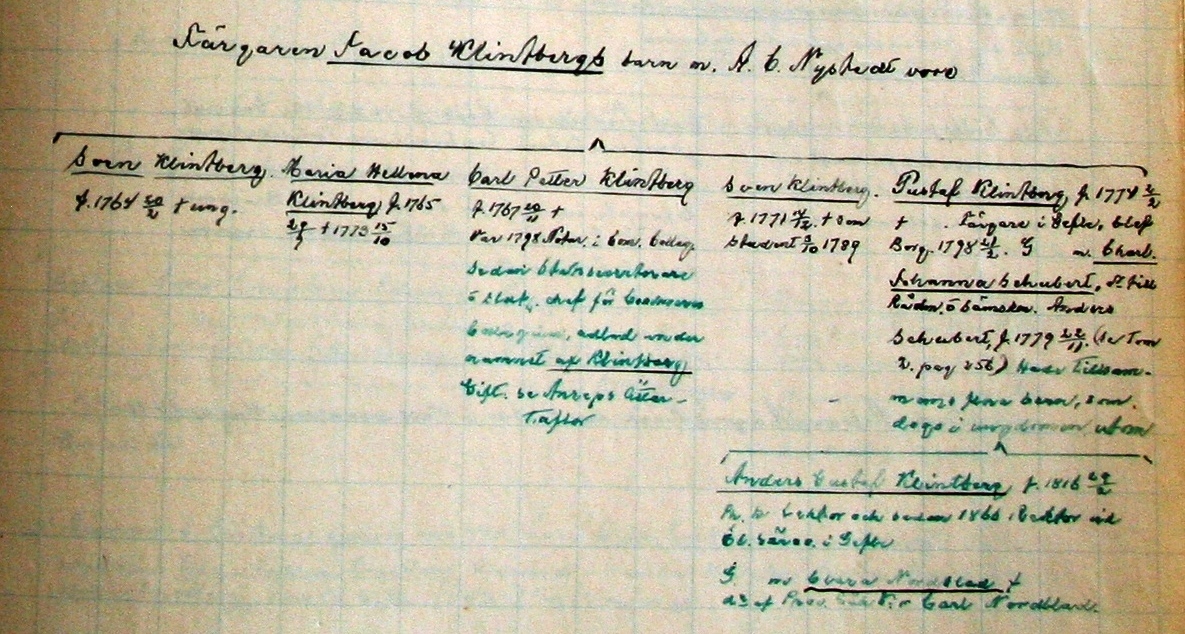 Färgaren Jacob Klintbergs barn m. A. C. Nystedt voro
Sven Klintberg.
f. 1764 20/2 † ung.
Maria Hellena
Klintberg f. 1765
29/9 † 1773 15/10
Carl Petter Klintberg
f. 1767 20/11 †
Var 1798 Notar. i Com. Colleg.
sedan Statssecreterare
o Stat, chef för Commerce
Collegium, adlad under
namnet af Klintberg
Gift. se Anreps Ätter-
Taflor
Sven Klintberg.
f. 1771 /2. † som
Student /10 1789
Gustaf Klintberg f. 1774 /2
† . Färgare i Gefle, blef
Borg. 1798 /2. G m. Charl.
Johanna Schubert, dr till
Rådm. o Sämskm. Anders
Schubert, f. 1779 22/11. (se Tom
2. pag 256) Hade Tillsam-
mans flera barn, som
dogo i ungdomen utom
Anders Gustaf Klintberg f. 1816 29/2
Ph. Dr Lektor och sedan 1860 Rektor vid
El. Lärov. i Gefle
G. m Clara Nordblad †
dr af Carl Nordblad.